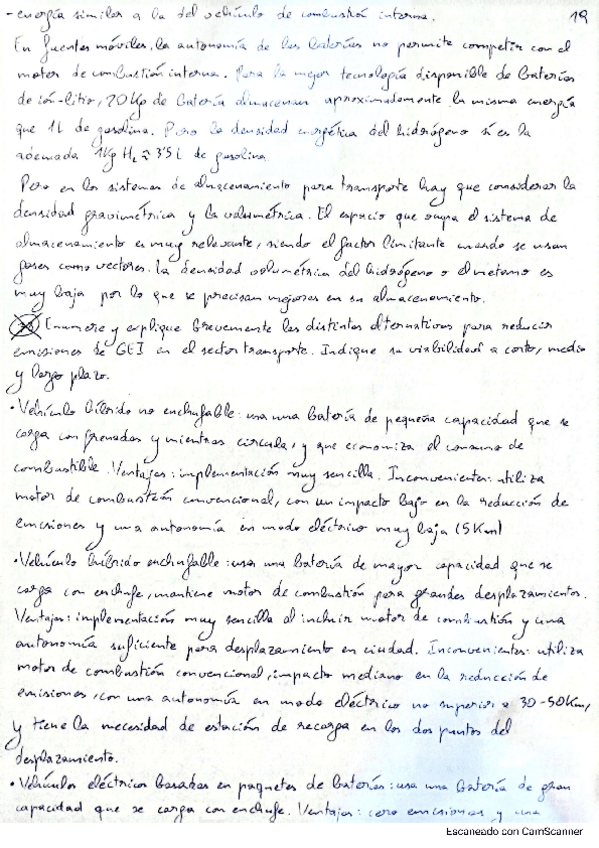 - energía similar a la del vehículo de combustión interna. 19
En fuentes móviles, la autonomía de las baterías no permite competir con el
motor de combustión interna. Para la mejor tecnología disponible de baterías
de ión-litio, 20 Kg de batería almacenan aproximadamente la misma energía
que 1L de gasolina. Pero la densidad energética del hidrógeno sí es la
adecuada 1Kg H₂ ≈ 3'5 L de gasolina
Pero en los sistemas de almacenamiento para transporte hay que considerar la
densidad gravimétrica y la volumétrica. El espacio que ocupa el sistema de
almacenamiento es muy relevante, siendo el factor limitante cuando se usan
gases como vectores. La densidad volumétrica del hidrógeno o el metano es
muy baja por lo que se precisan mejoras en su almacenamiento.
Enumere y explique brevemente las distintas alternativas para reducir
emisiones de GEI en el sector transporte. Indique su viabilidad a corto, medio
y largo plazo.
• Vehículo híbrido no enchufable: usa una batería de pequeña capacidad que se
carga con frenadas y mientras circula, y que economiza el consumo de
combustible. Ventajas: implementación muy sencilla. Inconvenientes: utiliza
motor de combustión convencional, con un impacto bajo en la reducción de
emisiones y una autonomía en modo eléctrico muy baja (5Km)
• Vehículo híbrido enchufable: usa una batería de mayor capacidad que se
carga con enchufe, mantiene motor de combustión para grandes desplazamientos.
Ventajas: implementación muy sencilla al incluir motor de combustión y una
autonomía suficiente para desplazamiento en ciudad. Inconvenientes: utiliza
motor de combustión convencional, impacto mediano en la reducción de
emisiones, con una autonomía en modo eléctrico no superior a 30-50Km,
y tiene la necesidad de estación de recarga en los dos puntos del
desplazamiento.
• Vehículos eléctricos basados en paquetes de baterías: usa una batería de gran
capacidad que se carga con enchufe. Ventajas: cero emisiones y una
Escaneado con CamScanner